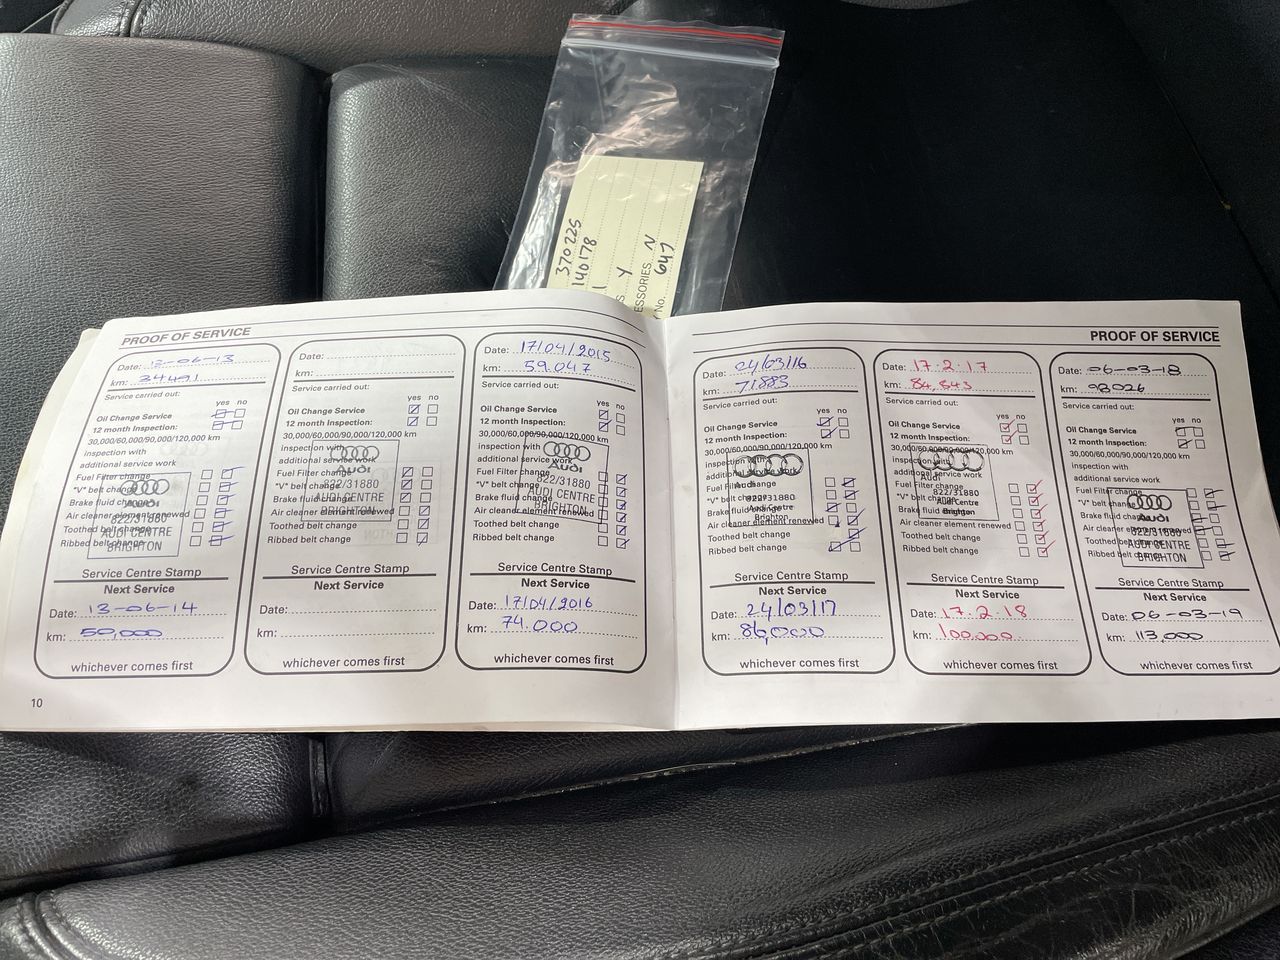 370225
140178
Y
ESSORIES N
No. 647
PROOF OF SERVICE
Date: 13-06-13
km: 34491
Service carried out:
yes no
Oil Change Service
12 month Inspection:
30,000/60,000/90,000/120,000 km
inspection with
additional service work
Fuel Filter change
"V" belt change
Brake fluid change
Air cleaner element renewed
Toothed belt change
Ribbed belt change
Audi
822/31880
AUDI CENTRE
BRIGHTON
Service Centre Stamp
Next Service
Date: 13-06-14
km: 50,000
whichever comes first
Date:
km:
Service carried out:
yes no
Oil Change Service
12 month Inspection:
30,000/60,000/90,000/120,000 km
inspection with
additional service work
Fuel Filter change
"V" belt change
Brake fluid change
Air cleaner element renewed
Toothed belt change
Ribbed belt change
Audi
822/31880
AUDI CENTRE
BRIGHTON
Service Centre Stamp
Next Service
Date:
km:
whichever comes first
Date: 17/04/2015
km: 59.047
Service carried out:
yes no
Oil Change Service
12 month Inspection:
30,000/60,000/90,000/120,000 km
inspection with
additional service work
Fuel Filter change
"V" belt change
Brake fluid change
Air cleaner element renewed
Toothed belt change
Ribbed belt change
Audi
822/31880
AUDI CENTRE
BRIGHTON
Service Centre Stamp
Next Service
Date: 17/04/2016
km: 74.000
whichever comes first
10
PROOF OF SERVICE
Date: 24/03/16
km: 71883
Service carried out:
yes no
Oil Change Service
12 month Inspection:
30,000/60,000/90,000/120,000 km
inspection with
additional service work
Fuel Filter change
"V" belt change
Brake fluid change
Air cleaner element renewed
Toothed belt change
Ribbed belt change
Audi
822/31880
Audi Centre
Brighton
Service Centre Stamp
Next Service
Date: 24/03/17
km: 86,000
whichever comes first
Date: 17.2.17
km: 84,843
Service carried out:
yes no
Oil Change Service
12 month Inspection:
30,000/60,000/90,000/120,000 km
inspection with
additional service work
Fuel Filter change
"V" belt change
Brake fluid change
Air cleaner element renewed
Toothed belt change
Ribbed belt change
Audi
822/31880
Audi Centre
Brighton
Service Centre Stamp
Next Service
Date: 17.2.18
km: 100,000
whichever comes first
Date: 06-03-18
km: 98026
Service carried out:
yes no
Oil Change Service
12 month Inspection:
30,000/60,000/90,000/120,000 km
inspection with
additional service work
Fuel Filter change
"V" belt change
Brake fluid change
Air cleaner element renewed
Toothed belt change
Ribbed belt change
Audi
822/31880
AUDI CENTRE
BRIGHTON
Service Centre Stamp
Next Service
Date: 06-03-19
km: 113,000
whichever comes first